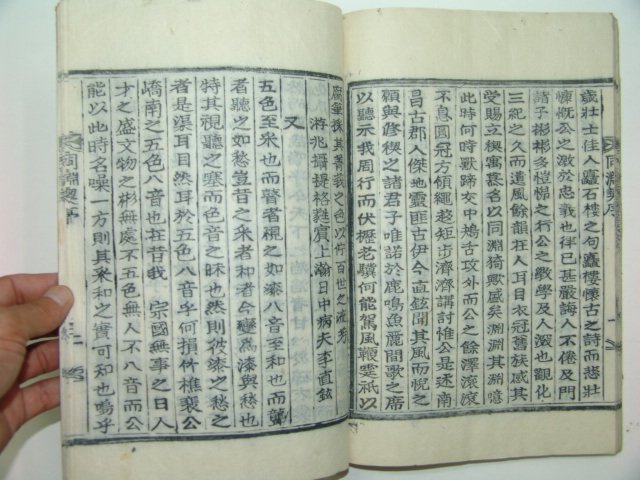 歲壯士佳人矗石樓之句矗樓懷古之詩而悲壯
慷慨公之激於忠義也律已甚嚴誨人不倦及門
諸子彬彬多愷悌之行公之斅學及人深也觀化
三紀之久而遺風餘韻在人耳目衣冠舊族咸其
受賜立稧寓慕名以同淵猗歟感矣淵其淵噫
此時何時獸蹄交中鴂舌攻外而公之餘澤滾滾
不息圓冠方領繩趍短步濟濟講討惟公是述南
昌古郡人傑地靈匪古伊今直鉉聞其風而悅之
願與修稧之諸君子唯諾於鹿鳴魚麗間歌之席
以聽示我周行而伏櫪老驥何能駕風鞭霆祇以
之色以侑百世之流芳
游兆攝提格蕤賓上瀚日中病夫李直鉉
又
五色至采也而瞽者視之如漆八音至和也而聾
者聽之如愁豈音之采者和者今變爲漆與愁也
特其視聽之塞而色音之昧也然則彼漆之愁之
者是渠耳目然耳於五色八音乎何損件樵裴公
嶠南之五色八音也在昔我 宗國無事之日人
才之盛文物之彬無處不五色無人不八音而公
能以此時名噪一方則其采和之實可知也嗚乎
同淵稧序
同淵稧序